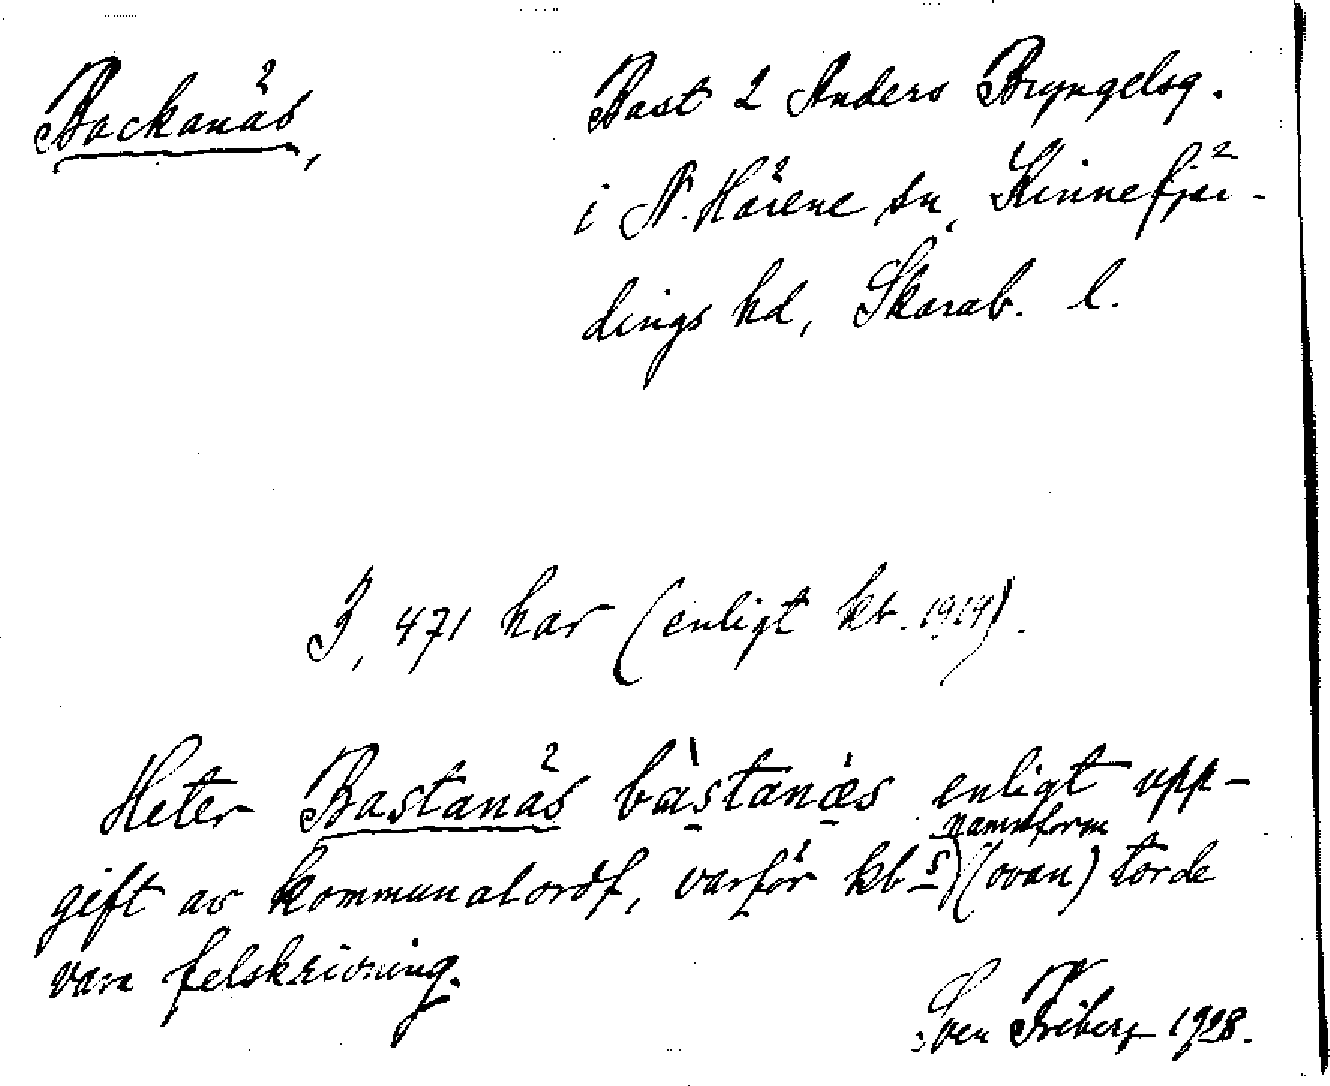 Backanäs,
Bast 2 Anders Bryngelsg.
i N. Härene sn, Kinnefjär-
dings hd, Skarab. l.
I, 471 har (enligt kb. 1914).
Heter Bastanäs bàstanæs enligt upp-
namnform
gift av kommunalordf, varför kb-s (ovan) torde
vara felskrivning.
Sven Friberg 1928.